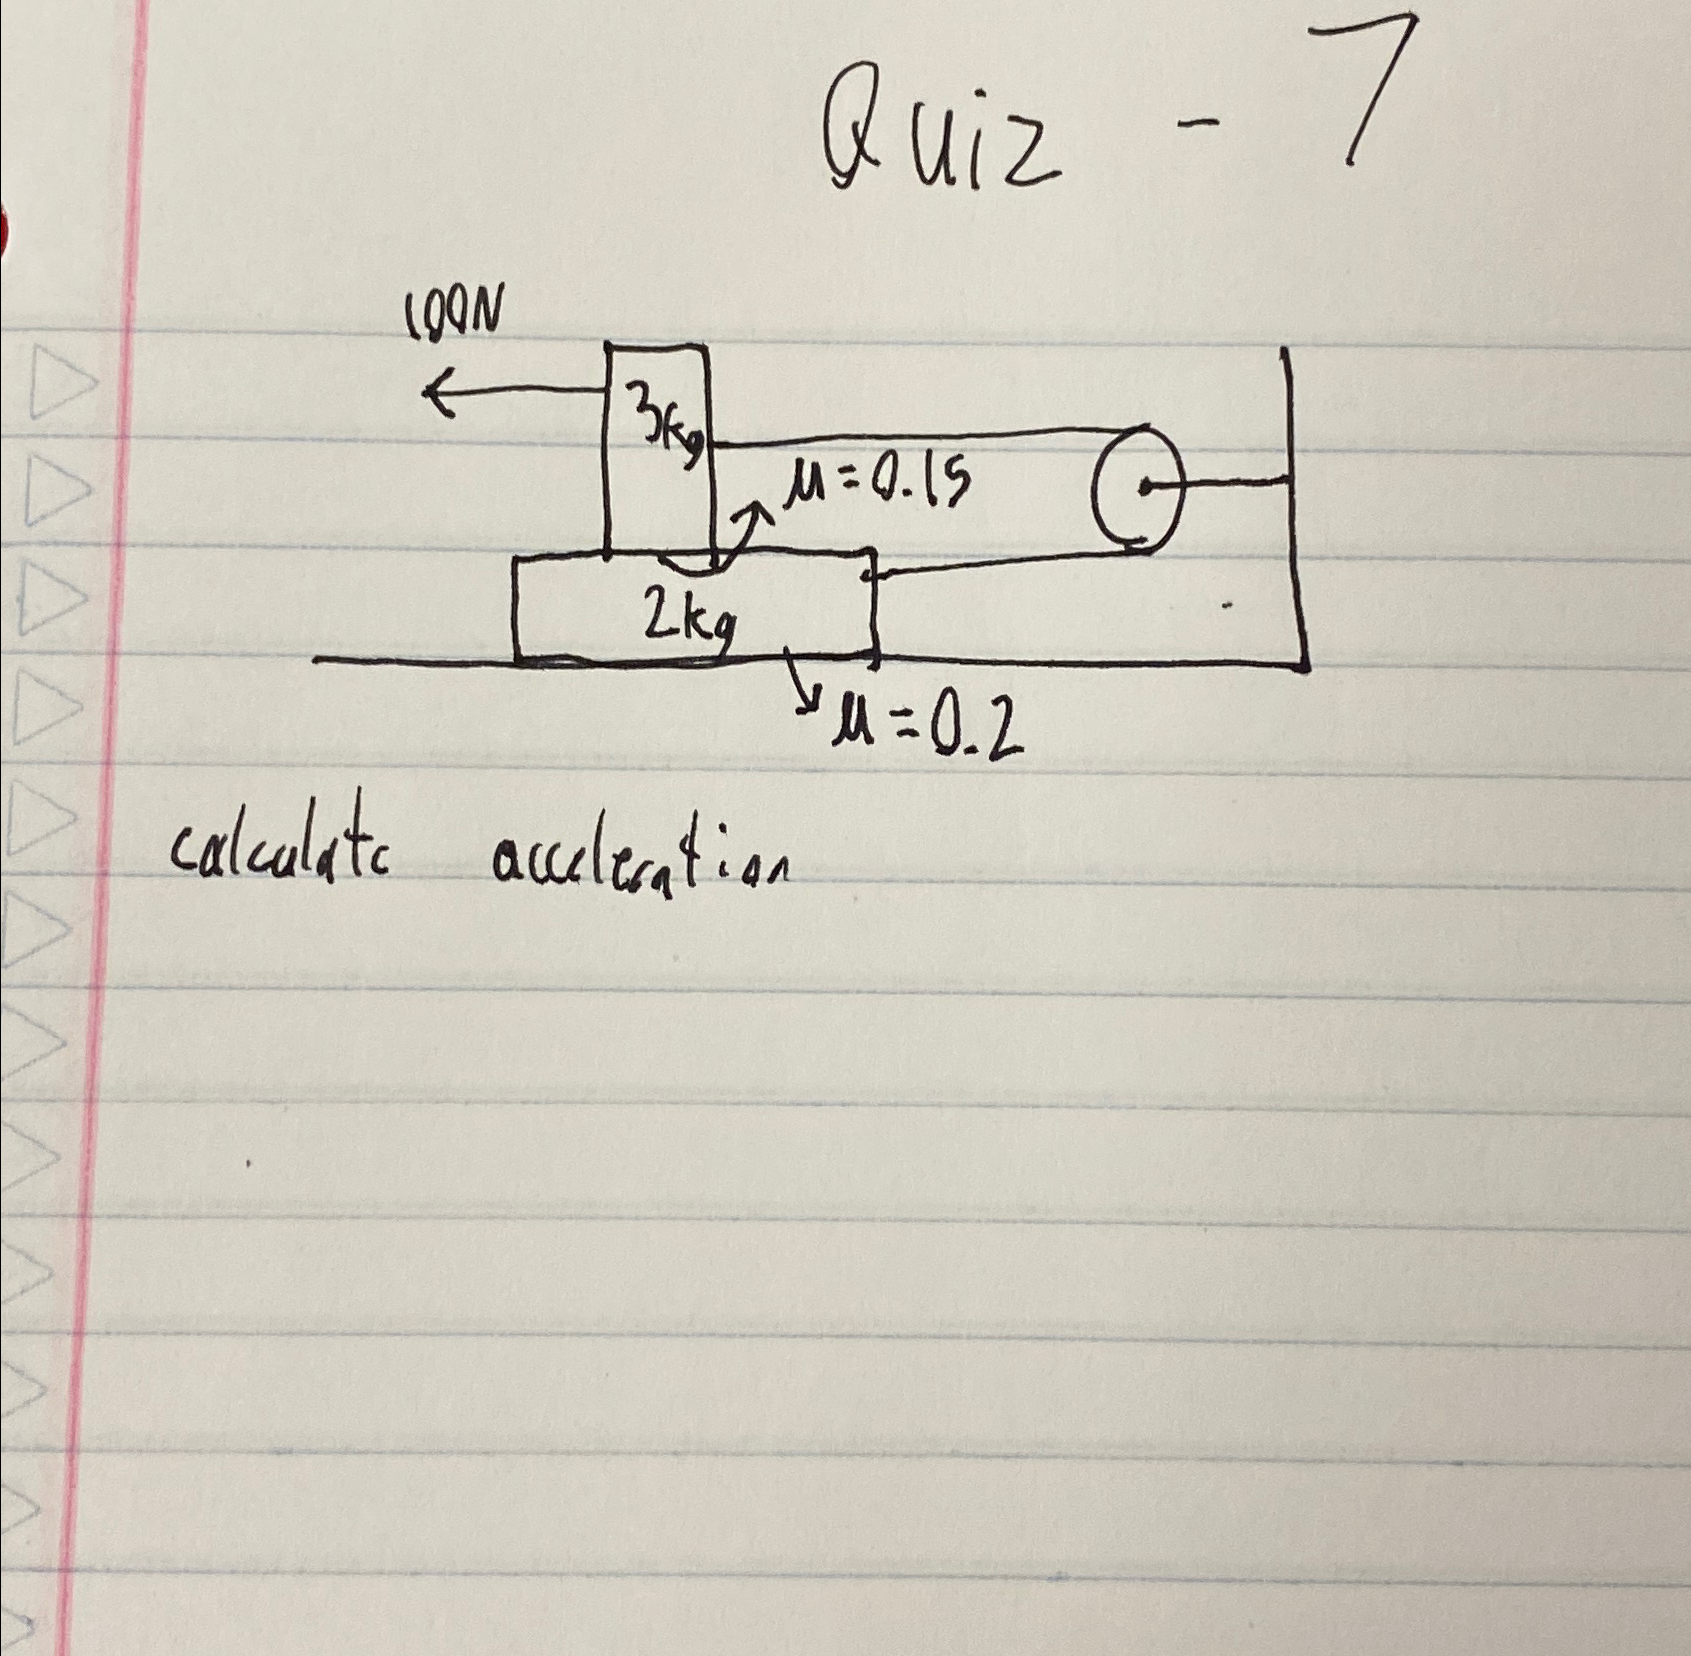 Quiz - 7
100N
3kg
μ=0.15
2kg
μ=0.2
calculate acceleration